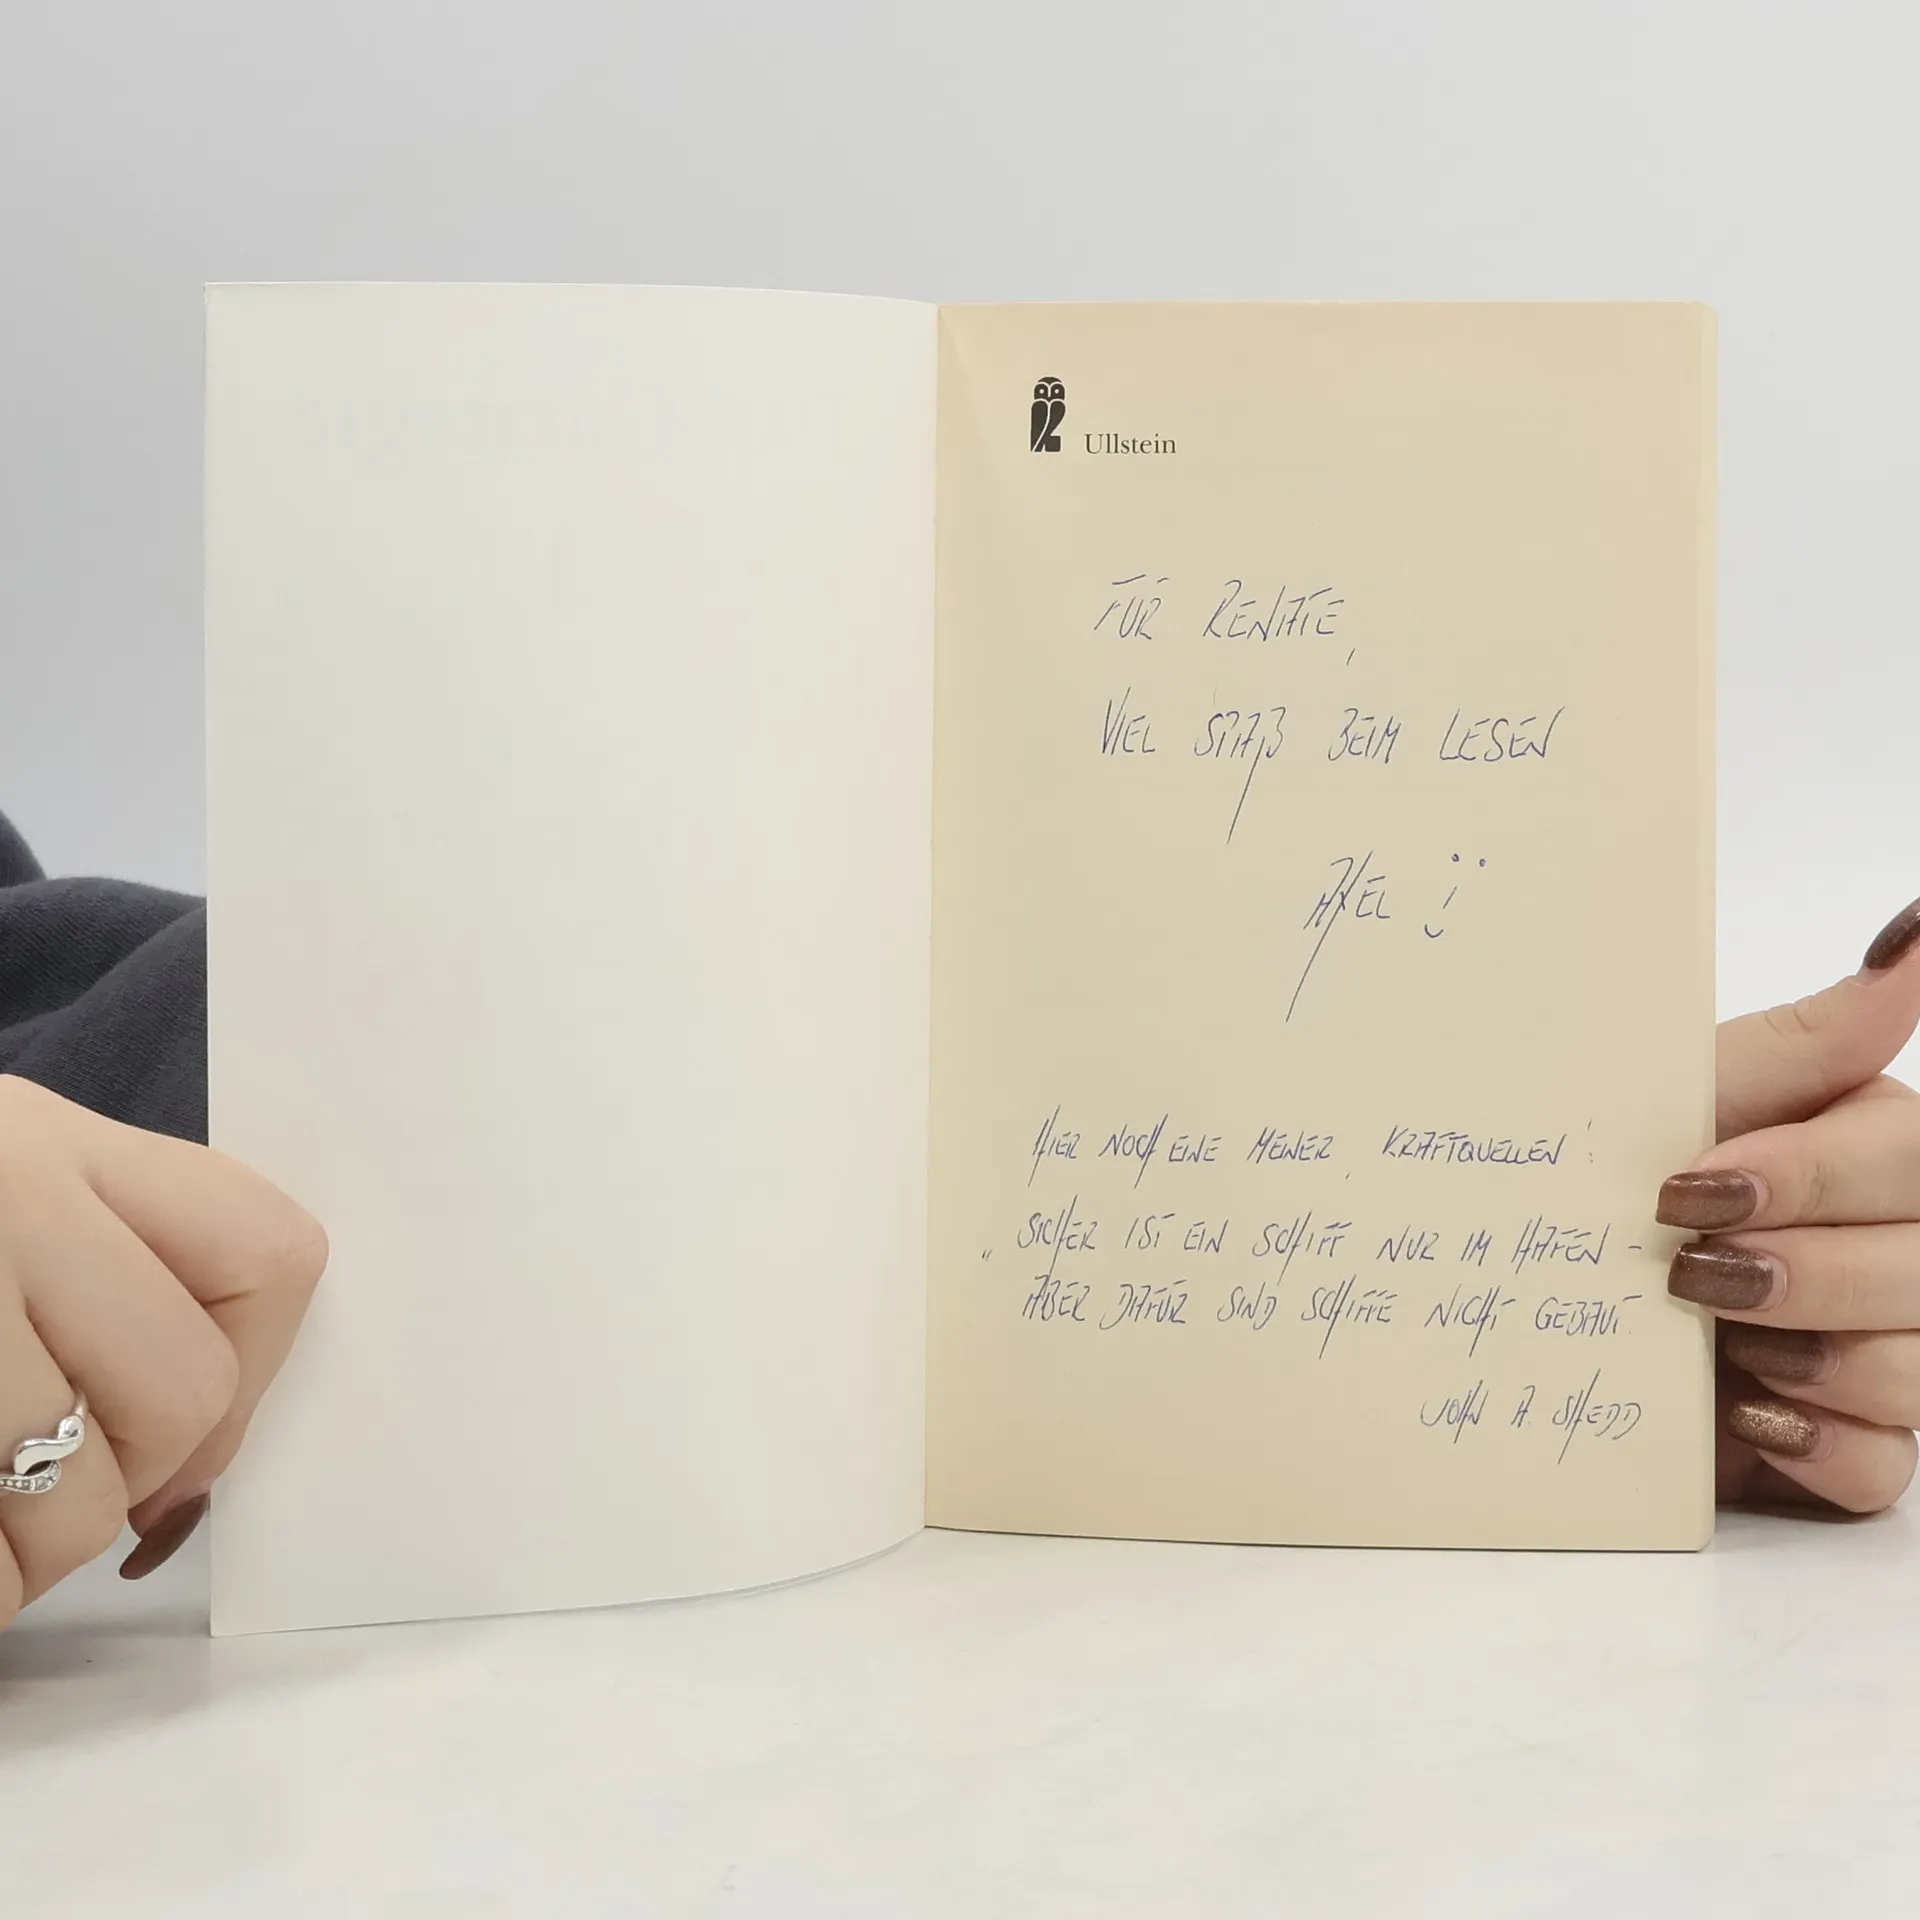 Ullstein
FÜR RENATE,
VIEL SPAß BEIM LESEN
AXEL
HIER NOCH EINE MEINER KRAFTQUELLEN:
„SICHER IST EIN SCHIFF NUR IM HAFEN –
ABER DAFÜR SIND SCHIFFE NICHT GEBAUT.
JOHN A. SHEDD